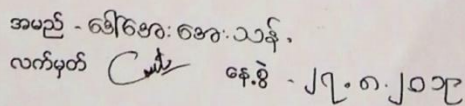 အမည် - ဒေါ်အေးအေးသန်း
လက်မှတ် နေ့စွဲ - ၂၇.၈.၂၀၁၉